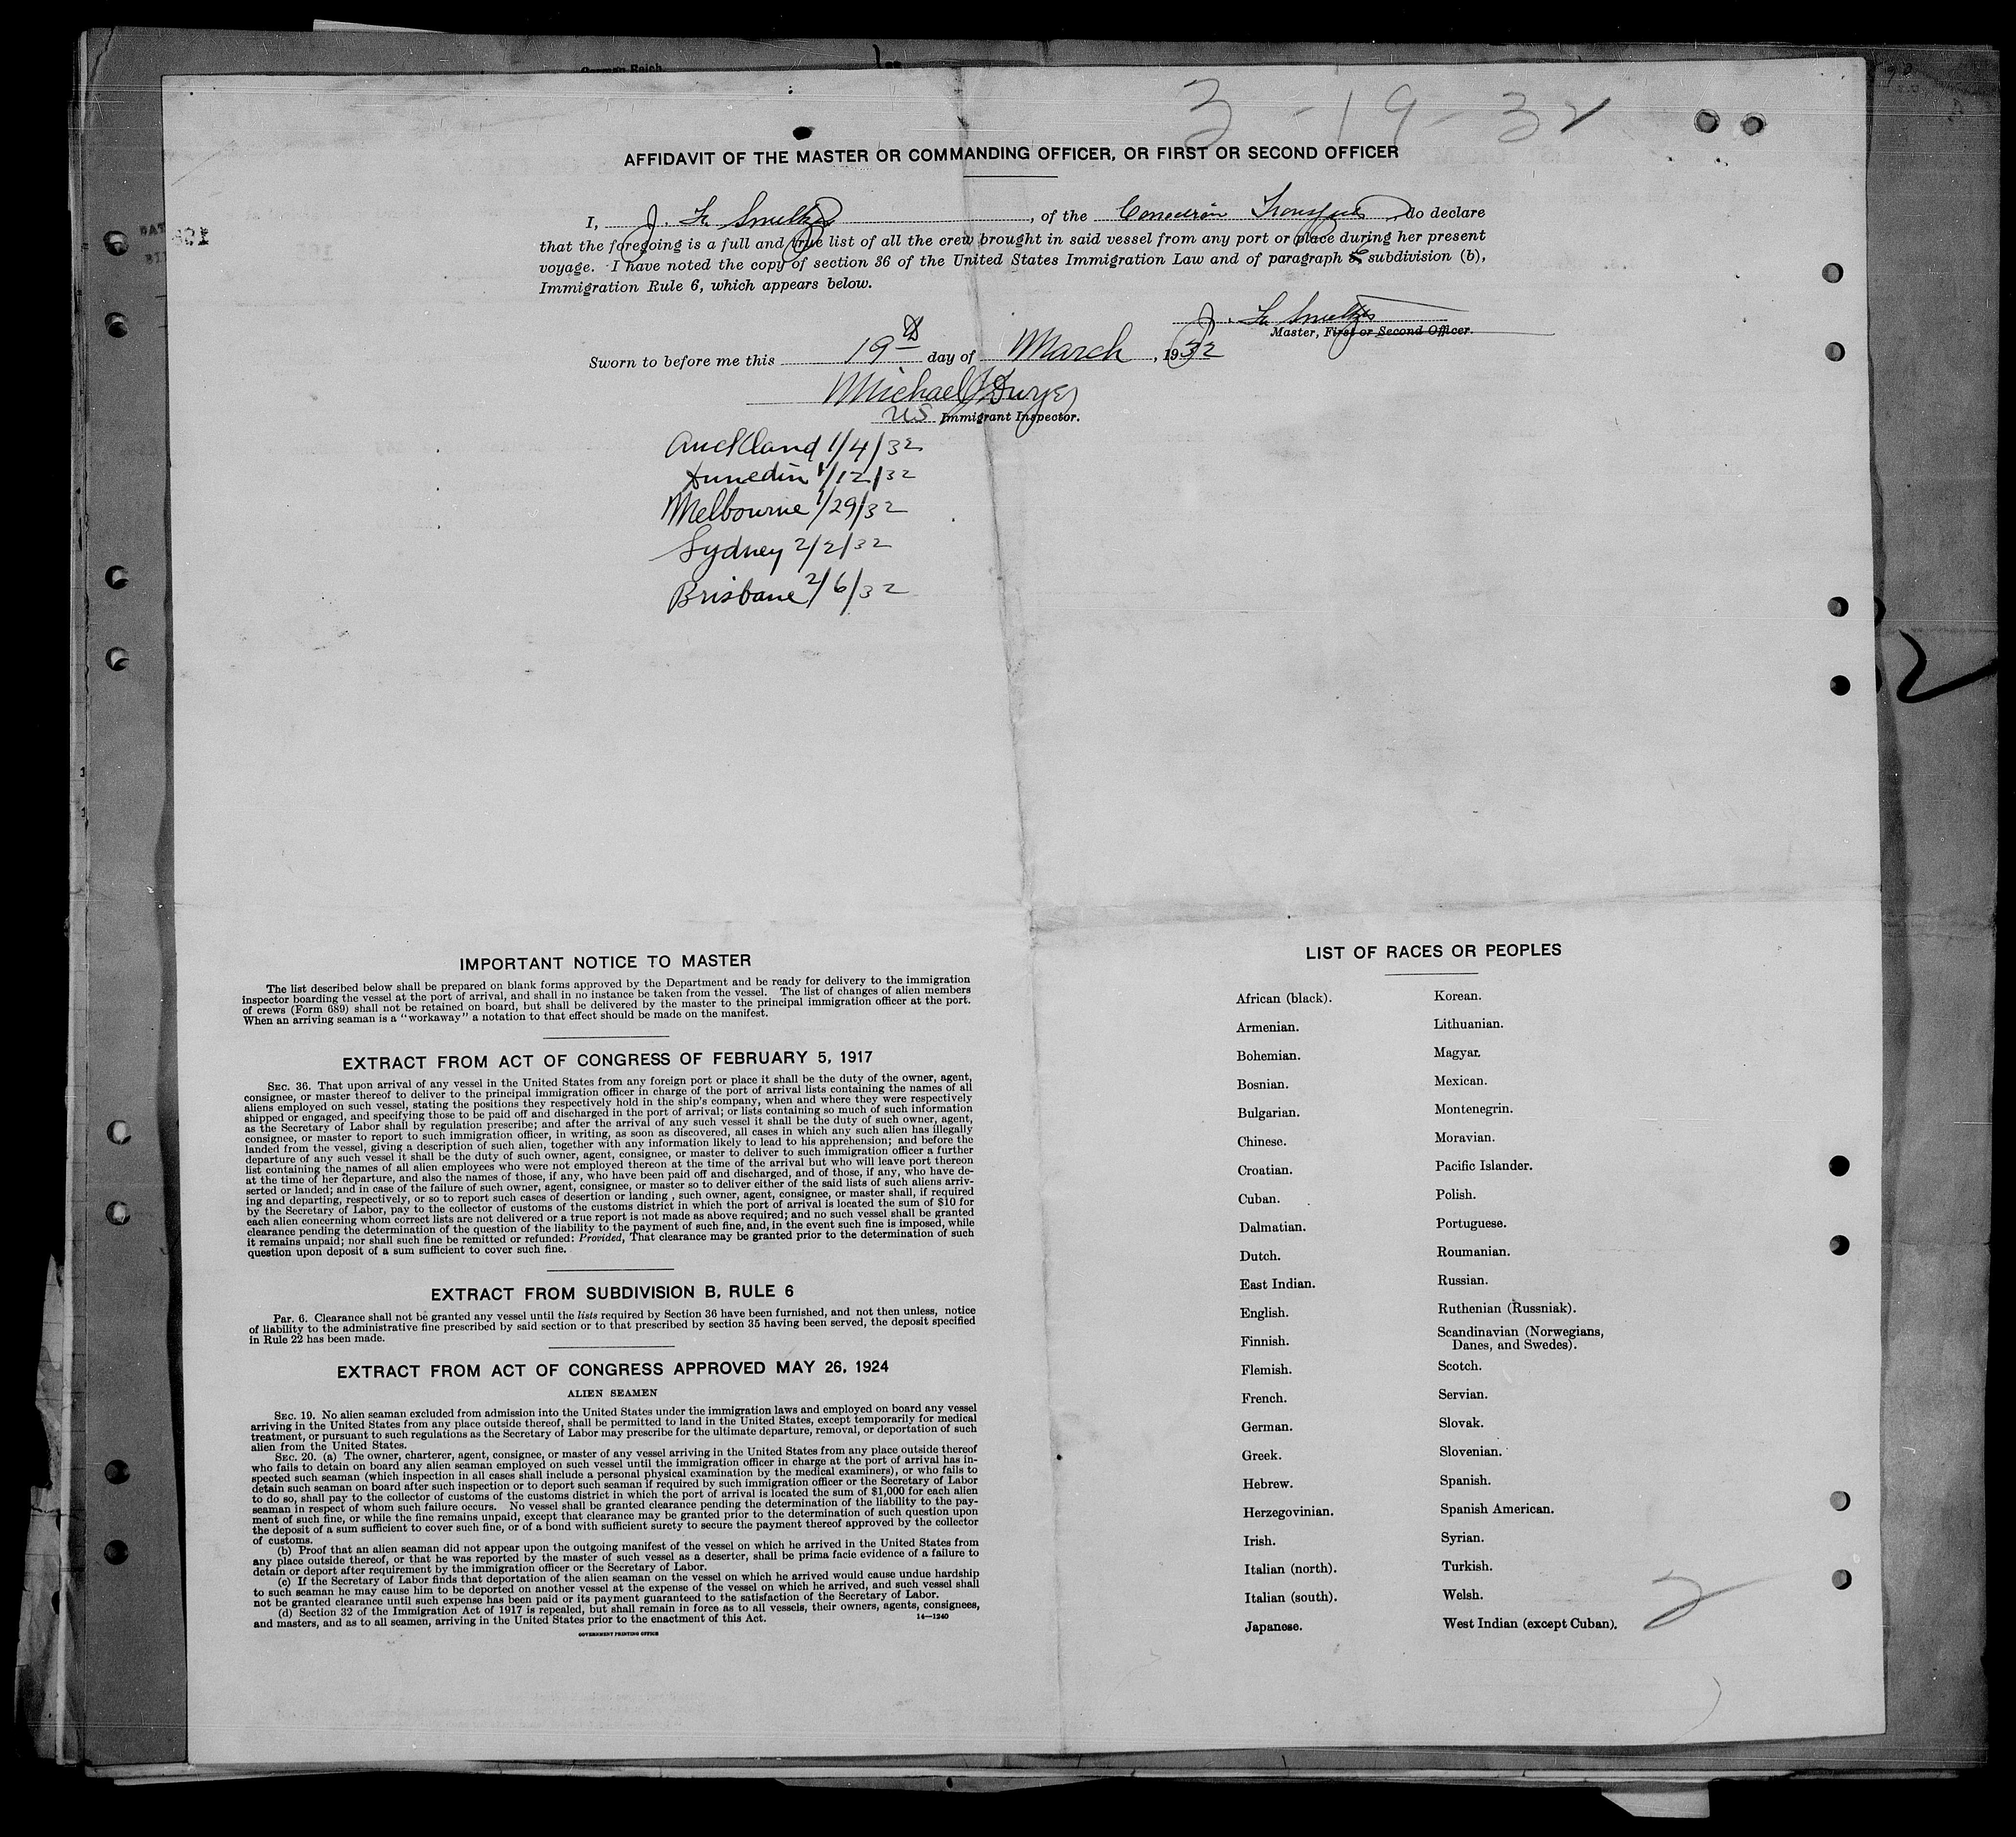 3-19-32
AFFIDAVIT OF THE MASTER OR COMMANDING OFFICER, OR FIRST OR SECOND OFFICER
I, J. , of the Canadian , do declare
that the foregoing is a full and true list of all the crew brought in said vessel from any port or place during her present
voyage. I have noted the copy of section 36 of the United States Immigration Law and of paragraph 6, subdivision (b),
Immigration Rule 6, which appears below.
J.
Master, First or Second Officer.
Sworn to before me this 19th day of March, 1932
Michael Dwyer
US Immigrant Inspector.
Auckland 1/4/32
Dunedin 1/12/32
Melbourne 1/29/32
Sydney 2/2/32
Brisbane 2/6/32
IMPORTANT NOTICE TO MASTER
The list described below shall be prepared on blank forms approved by the Department and be ready for delivery to the immigration
inspector boarding the vessel at the port of arrival, and shall in no instance be taken from the vessel. The list of changes of alien members
of crews (Form 689) shall not be retained on board, but shall be delivered by the master to the principal immigration officer at the port.
When an arriving seaman is a "workaway" a notation to that effect should be made on the manifest.
EXTRACT FROM ACT OF CONGRESS OF FEBRUARY 5, 1917
SEC. 36. That upon arrival of any vessel in the United States from any foreign port or place it shall be the duty of the owner, agent,
consignee, or master thereof to deliver to the principal immigration officer in charge of the port of arrival lists containing the names of all
aliens employed on such vessel, stating the positions they respectively hold in the ship's company, when and where they were respectively
shipped or engaged, and specifying those to be paid off and discharged in the port of arrival; or lists containing so much of such information
as the Secretary of Labor shall by regulation prescribe; and after the arrival of any such vessel it shall be the duty of such owner, agent,
consignee, or master to report to such immigration officer, in writing, as soon as discovered, all cases in which any such alien has illegally
landed from the vessel, giving a description of such alien, together with any information likely to lead to his apprehension; and before the
departure of any such vessel it shall be the duty of such owner, agent, consignee, or master to deliver to such immigration officer a further
list containing the names of all alien employees who were not employed thereon at the time of the arrival but who will leave port thereon
at the time of her departure, and also the names of those, if any, who have been paid off and discharged, and of those, if any, who have de-
serted or landed; and in case of the failure of such owner, agent, consignee, or master so to deliver either of the said lists of such aliens arriv-
ing and departing, respectively, or so to report such cases of desertion or landing , such owner, agent, consignee, or master shall, if required
by the Secretary of Labor, pay to the collector of customs of the customs district in which the port of arrival is located the sum of $10 for
each alien concerning whom correct lists are not delivered or a true report is not made as above required; and no such vessel shall be granted
clearance pending the determination of the question of the liability to the payment of such fine, and, in the event such fine is imposed, while
it remains unpaid; nor shall such fine be remitted or refunded: Provided, That clearance may be granted prior to the determination of such
question upon deposit of a sum sufficient to cover such fine.
EXTRACT FROM SUBDIVISION B, RULE 6
Par. 6. Clearance shall not be granted any vessel until the lists required by Section 36 have been furnished, and not then unless, notice
of liability to the administrative fine prescribed by said section or to that prescribed by section 35 having been served, the deposit specified
in Rule 22 has been made.
EXTRACT FROM ACT OF CONGRESS APPROVED MAY 26, 1924
ALIEN SEAMEN
SEC. 19. No alien seaman excluded from admission into the United States under the immigration laws and employed on board any vessel
arriving in the United States from any place outside thereof, shall be permitted to land in the United States, except temporarily for medical
treatment, or pursuant to such regulations as the Secretary of Labor may prescribe for the ultimate departure, removal, or deportation of such
alien from the United States.
SEC. 20. (a) The owner, charterer, agent, consignee, or master of any vessel arriving in the United States from any place outside thereof
who fails to detain on board any alien seaman employed on such vessel until the immigration officer in charge at the port of arrival has in-
spected such seaman (which inspection in all cases shall include a personal physical examination by the medical examiners), or who fails to
detain such seaman on board after such inspection or to deport such seaman if required by such immigration officer or the Secretary of Labor
to do so, shall pay to the collector of customs of the customs district in which the port of arrival is located the sum of $1,000 for each alien
seaman in respect of whom such failure occurs. No vessel shall be granted clearance pending the determination of the liability to the pay-
ment of such fine, or while the fine remains unpaid, except that clearance may be granted prior to the determination of such question upon
the deposit of a sum sufficient to cover such fine, or of a bond with sufficient surety to secure the payment thereof approved by the collector
of customs.
(b) Proof that an alien seaman did not appear upon the outgoing manifest of the vessel on which he arrived in the United States from
any place outside thereof, or that he was reported by the master of such vessel as a deserter, shall be prima facie evidence of a failure to
detain or deport after requirement by the immigration officer or the Secretary of Labor.
(c) If the Secretary of Labor finds that deportation of the alien seaman on the vessel on which he arrived would cause undue hardship
to such seaman he may cause him to be deported on another vessel at the expense of the vessel on which he arrived, and such vessel shall
not be granted clearance until such expense has been paid or its payment guaranteed to the satisfaction of the Secretary of Labor.
(d) Section 32 of the Immigration Act of 1917 is repealed, but shall remain in force as to all vessels, their owners, agents, consignees,
and masters, and as to all seamen, arriving in the United States prior to the enactment of this Act.
14—1240
GOVERNMENT PRINTING OFFICE
LIST OF RACES OR PEOPLES
African (black). Korean.
Armenian. Lithuanian.
Bohemian. Magyar.
Bosnian. Mexican.
Bulgarian. Montenegrin.
Chinese. Moravian.
Croatian. Pacific Islander.
Cuban. Polish.
Dalmatian. Portuguese.
Dutch. Roumanian.
East Indian. Russian.
English. Ruthenian (Russniak).
Finnish. Scandinavian (Norwegians,
Danes, and Swedes).
Flemish. Scotch.
French. Servian.
German. Slovak.
Greek. Slovenian.
Hebrew. Spanish.
Herzegovinian. Spanish American.
Irish. Syrian.
Italian (north). Turkish.
Italian (south). Welsh.
Japanese. West Indian (except Cuban).
2